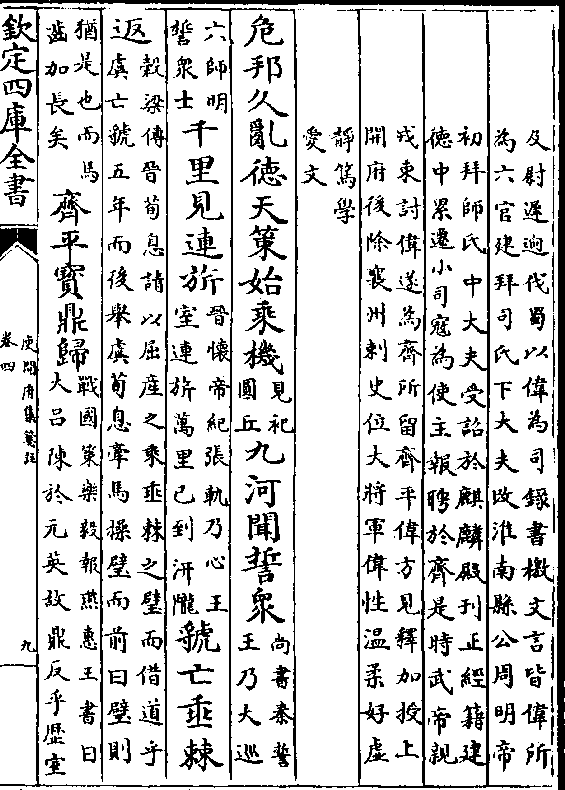 及尉遲迥伐蜀以偉為司錄書檄文言皆偉所
為六官建拜司氏下大夫改淮南縣公周明帝
初拜師氏中大夫受詔於麒麟殿刊正經籍建
德中累遷小司寇為使主報聘於齊是時武帝親
戎東討偉遂為齊所留齊平偉方見釋加授上
開府後除襄州刺史位大將軍偉性温柔好虚
靜篤學
愛文
危邦久亂德天策始乘機
見祀
圜丘
九河聞誓衆
尚書泰誓
王乃大巡
六師明
誓衆士
千里見連旂
晉懷帝紀張軌乃心王
室連旂萬里已到汧隴
虢亡垂棘
返
榖梁傳晉荀息請以屈産之乘垂棘之璧而借道乎
虞亡虢五年而後舉虞荀息牽馬操璧而前曰璧則
猶是也而馬
齒加長矣
齊平寶鼎歸
戰國策樂毅報燕惠王書曰
大吕陳於元英故鼎反乎歴室
欽定四庫全書
庾開府集箋註
卷四
九